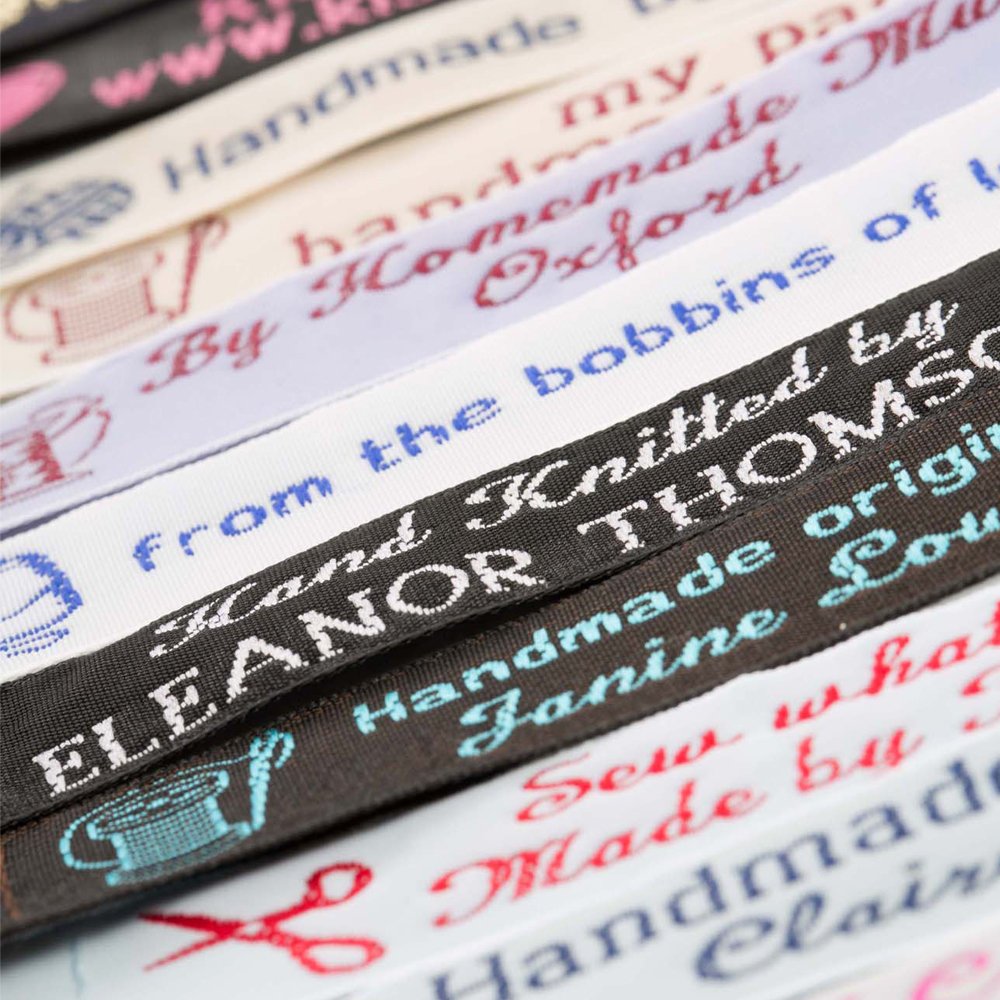 www.
Handmade
my
handma
By Homemade
Oxford
from the bobbins of
Hand Knitted by
ELEANOR THOMSO
Handmade origi
Janine Lou
Sew what
Made by
Handmade
Clair